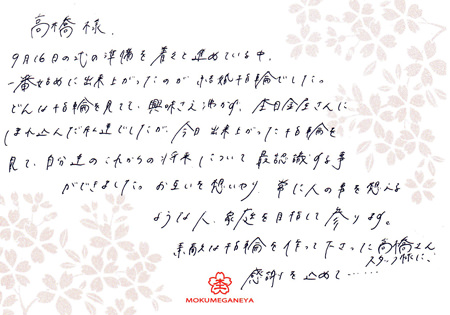 高橋様.
9月16日の式の準備を着々と進めている中.
一番始めに出来上がったのが結婚指輪でした。
どんな指輪を見てて、興味さえ沸かず、金目金屋さんに
ほれ込んだ私達でしたが、今日出来上がった指輪を
見て、自分達のこれからの将来について再認識する事
ができました。お互いを想いやり 常に人の事を想える
ような人、家庭を目指して参ります。
素敵な指輪を作って下さった高橋さん
スタッフ様に、
感謝を込めて……
MOKUMEGANEYA